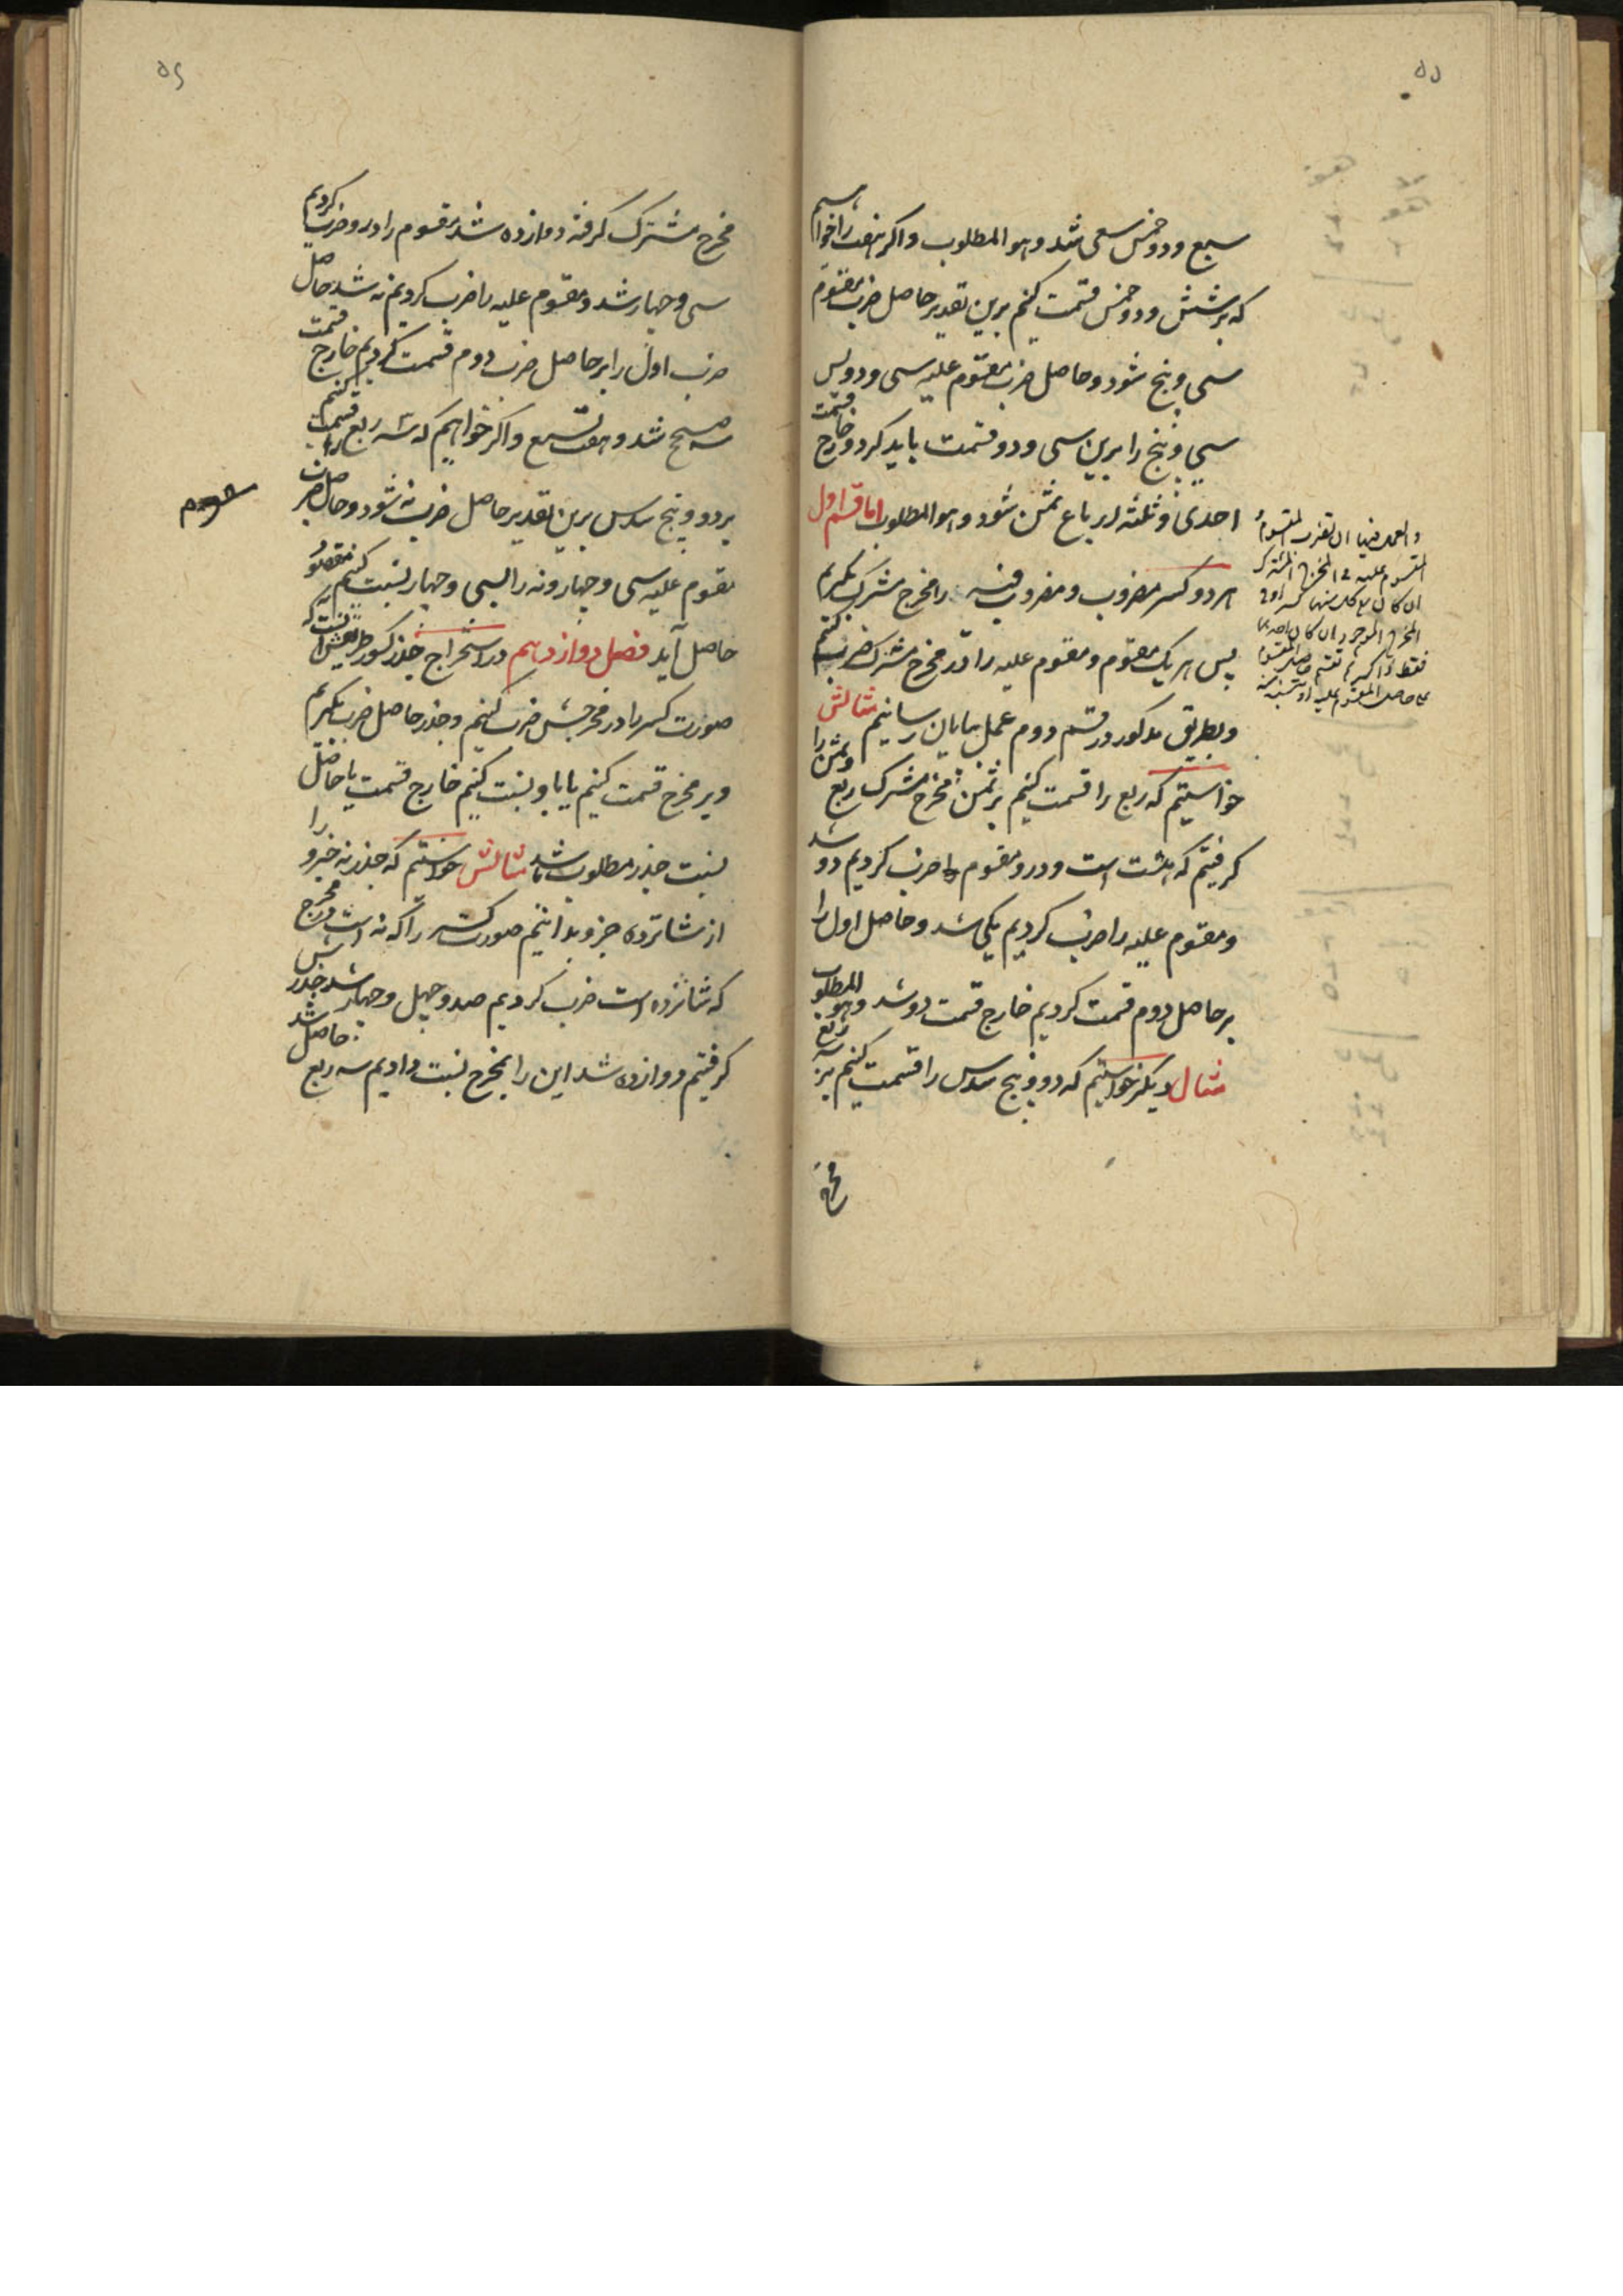 ۵۵
سبع و دو خمس سبعی شد و هو المطلوب و اکر هفت را خواهیم
که بر شش و دو خمس قسمت کنیم برین تقدیر حاصل ضرب مقسوم
سی و پنج شود و حاصل ضرب مقسوم علیه سی و دو پس
سی و پنج را برین سی و دو قسمت باید کرد و خارج قسمت
احدی و ثلثه ارباع ثمن شود و هو المطلوب اما قسم اول
هر دو کسر مضروب و مضروب فیه را مخرج مشترک بکیریم
پس هر یک مقسوم و مقسوم علیه را در مخرج مشترک ضرب کنیم
و بطریق مذکور در قسم دوم عمل بپایان رسانیم مثالش
خواستیم که ربع را قسمت کنیم بر ثمن مخرج مشترک ربع و ثمن را
کرفتیم که هشت است و درو مقسوم را ضرب کردیم دو شد
و مقسوم علیه را ضرب کردیم یکی شد و حاصل اول را
بر حاصل دوم قسمت کردیم خارج قسمت دو شد و هو المطلوب
مثال دیکر خواستیم که دو و پنج سدس را قسمت کنیم بر سه ربع
مخرج
و العمل فیها ان تضرب المقسوم و
المقسوم علیه فی المخرج المشترک
ان کان مع کل منهما کسر او فی
المخرج الموجود ان کان احدهما
فقط ذا کسر ثم تقسم حاصل المقسوم
علی حاصل المقسوم علیه او تنسبه منه
۵۶
مخرج مشترک کرفته دوازده شد مقسوم را درو ضرب کردیم
سی و چهار شد و مقسوم علیه را ضرب کردیم نه شد حاصل
ضرب اول را بر حاصل ضرب دوم قسمت کردیم خارج قسمت
سه صحیح شد و هفت تسع و اکر خواهیم که سه ربع را قسمت کنیم
بر دو و پنج سدس برین تقدیر حاصل ضرب نه شود و حاصل ضرب
مقسوم علیه سی و چهار و نه را بسی و چهار نسبت کنیم مقصود
حاصل آید فصل دوازدهم در استخراج جذر کسور طریقش آنست که
صورت کسر را در مخرجش ضرب کنیم و جذر حاصل ضرب بکیریم
و بر مخرج قسمت کنیم یا باو نسبت کنیم خارج قسمت یا حاصل
نسبت جذر مطلوب باشد مثالش خواستیم که جذر نه جزو را
از شانزده جزو بدانیم صورت کسر را که نه است در مخرجش
که شانزده است ضرب کردیم صد و چهل و چهار شد جذرش
کرفتیم دوازده شد این را بمخرج نسبت دادیم سه ربع حاصل شد